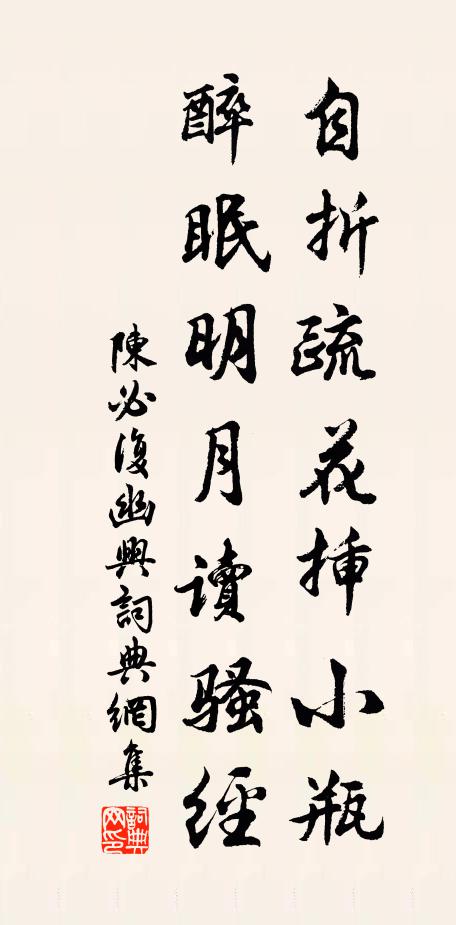 自折疏花挿小瓶
醉眠明月读骚經
陳必復幽興詞典網集
詞典网印